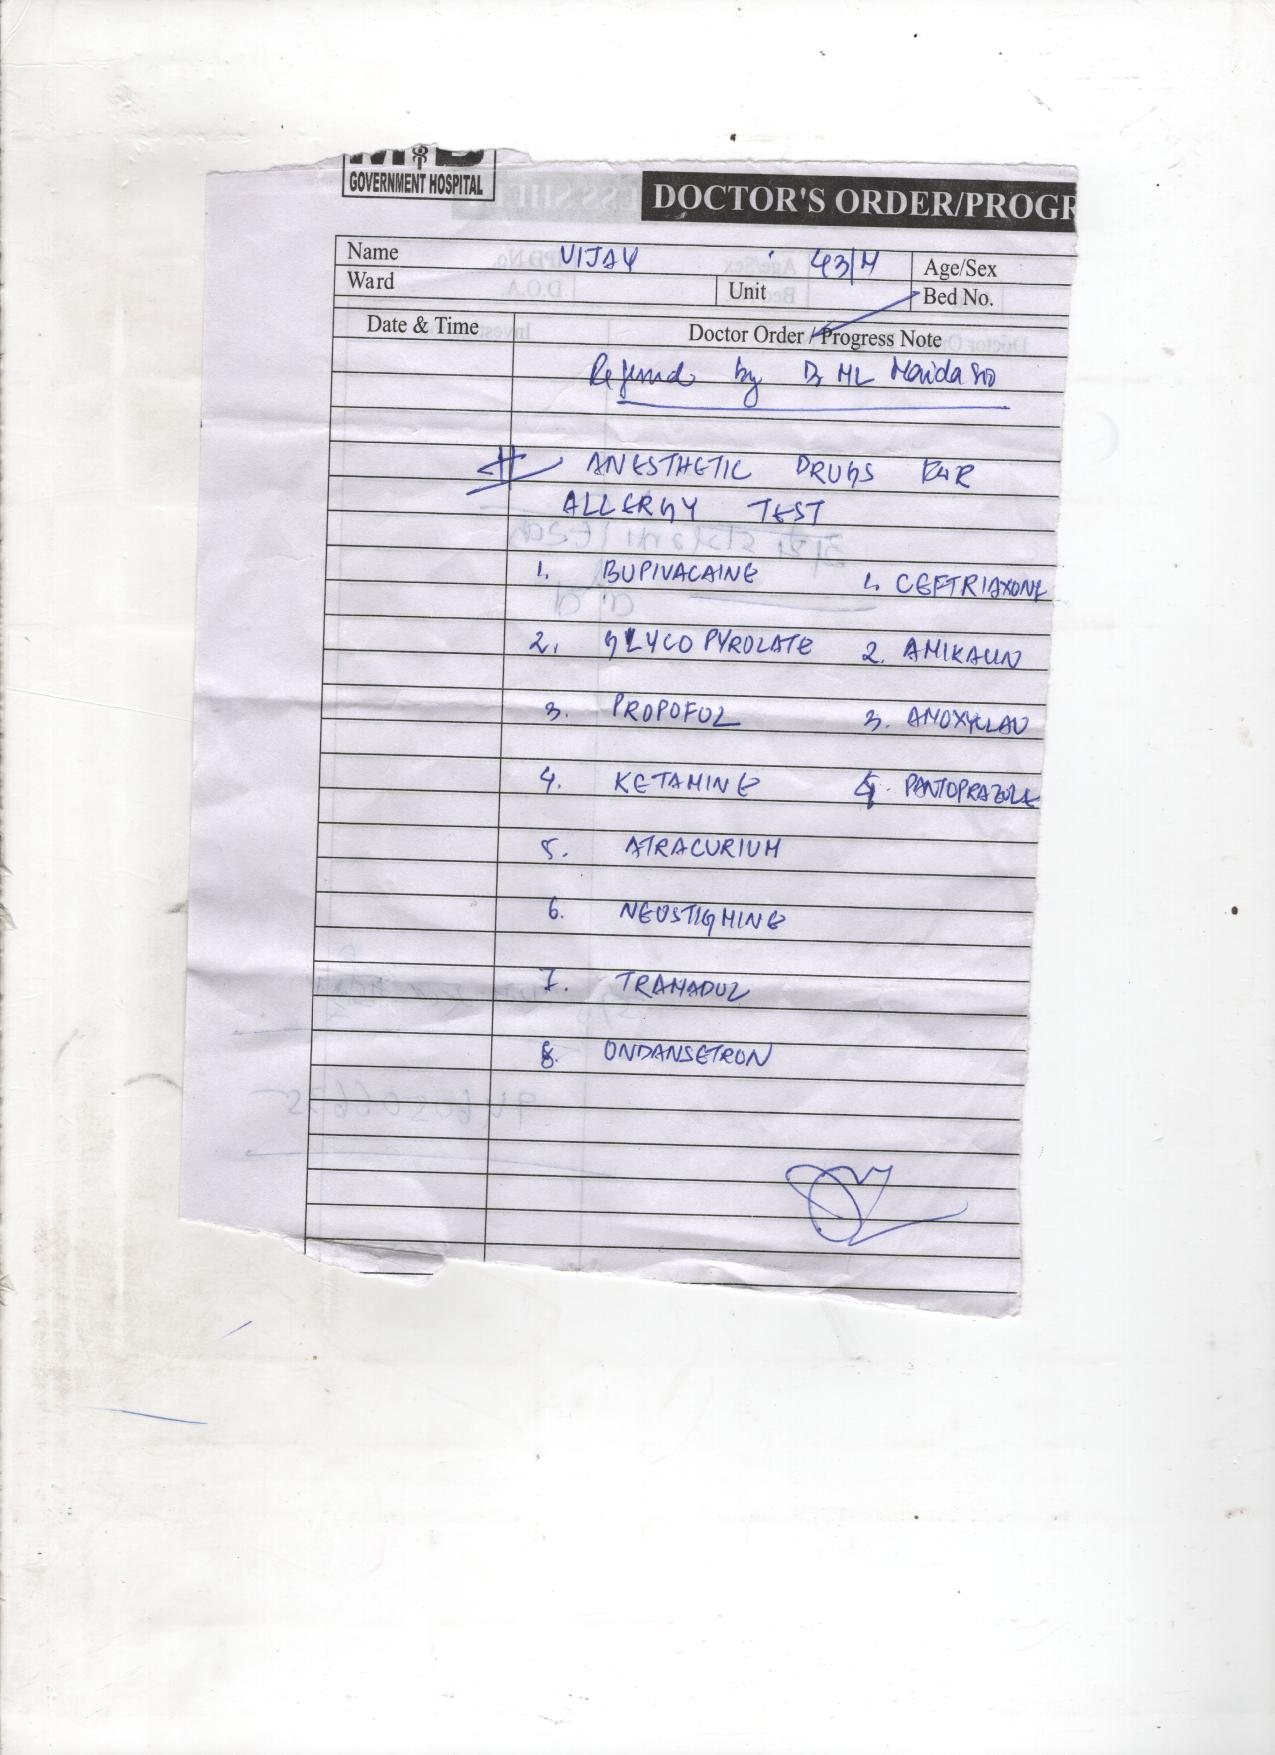 GOVERNMENT HOSPITAL
DOCTOR'S ORDER/PROGR
Name VIJAY 43/M Age/Sex
Ward Unit Bed No.
Date & Time Doctor Order / Progress Note
by Dr ML
# ANESTHETIC DRUGS FOR
ALLERGY TEST
1. BUPIVACAINE 1. CEFTRIAXONE
2. GLYCOPYROLATE 2. AMIKACIN
3. PROPOFOL 3. AMOXYCLAV
4. KETAMINE 4. PANTOPRAZOLE
5. ATRACURIUM
6. NEOSTIGMINE
7. TRAMADOL
8. ONDANSETRON